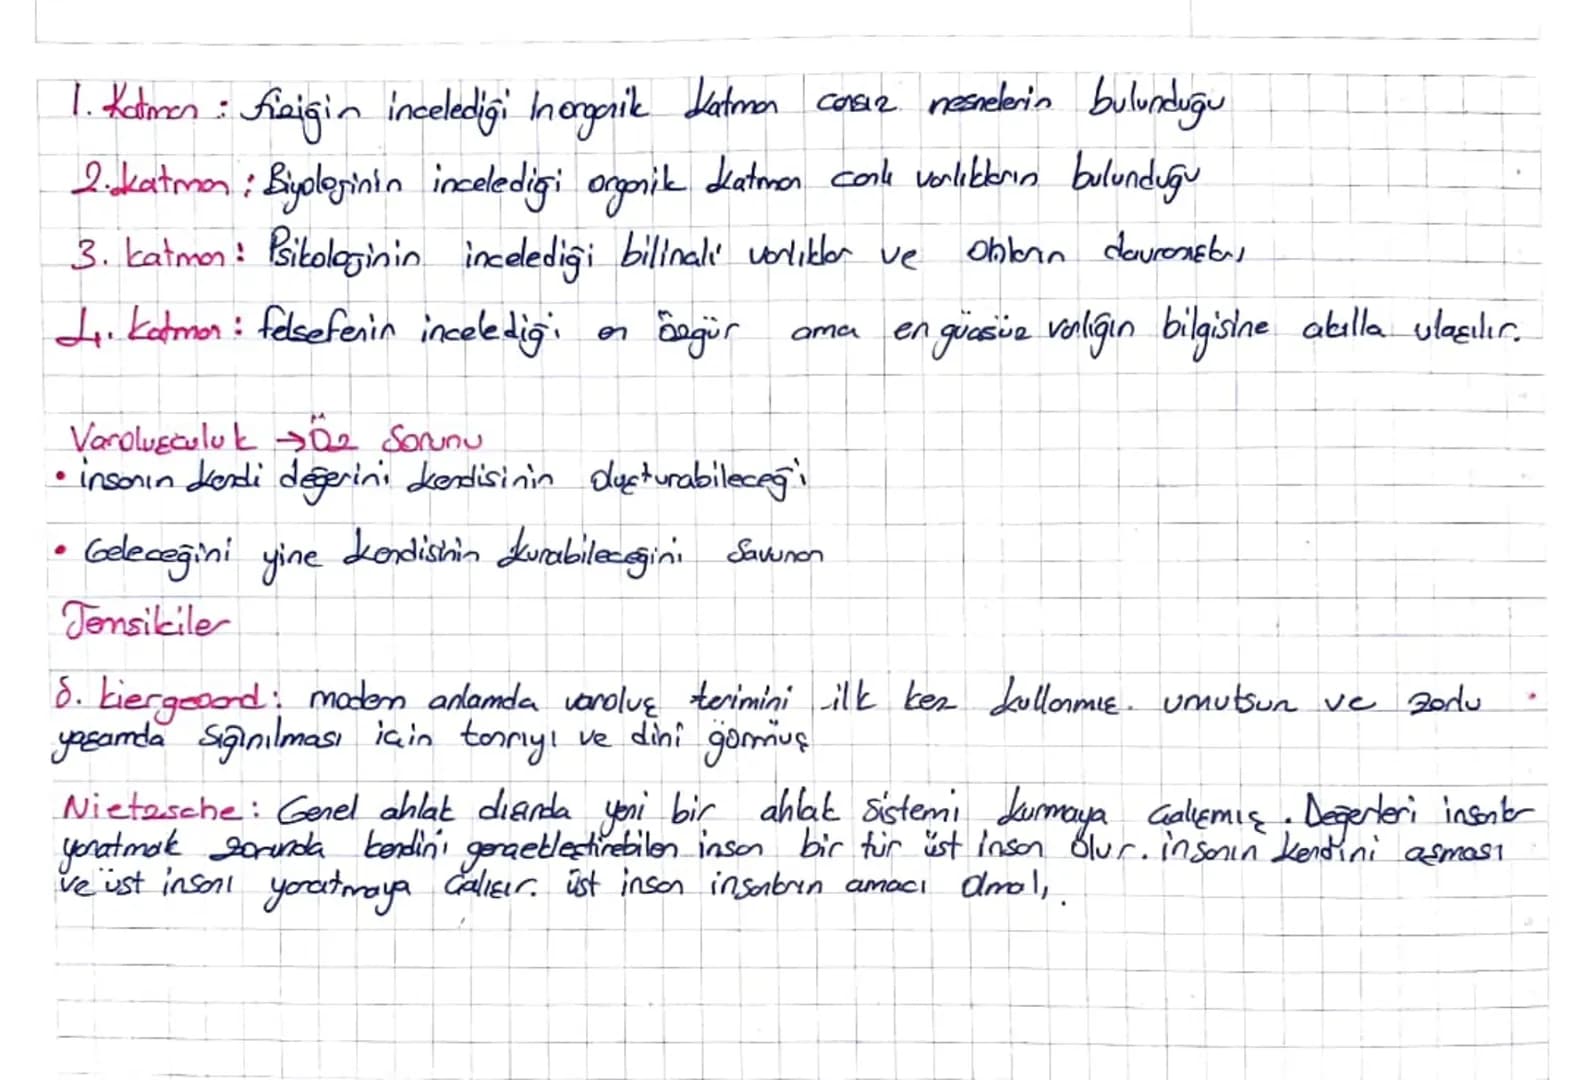 1. Katman : fiziğin incelediği İnorganik katman cansız nesnelerin bulunduğu
2. katman : Biyolojinin incelediği organik katman canlı varlıkların bulunduğu
3. katman : Psikolojinin incelediği bilinçli varlıklar ve onların davranışları
4. Katman : felsefenin incelediği en özgür ama en güçsüz varlığın bilgisine akılla ulaşılır.
Varoluşculuk → Öz Sorunu
• insanın kendi değerini kendisinin oluşturabileceği
• Geleceğini yine kendisinin kurabileceğini Savunan
Temsilciler
S. kiergaard: modern anlamda varoluş terimini ilk kez kullanmış. umutsuz ve zorlu
yaşamda Sığınılması için tanrıyı ve dini görmüş
Nietzsche: Genel ahlak dışında yeni bir ahlak sistemi kurmaya Çalışmış. Değerleri insanlar
yaratmak zorunda kendini gerçekleştirebilen insan bir tür üst insan olur. insanın kendini aşması
ve üst insanı yaratmaya Çalışır. üst insan insanların amacı olmalı.